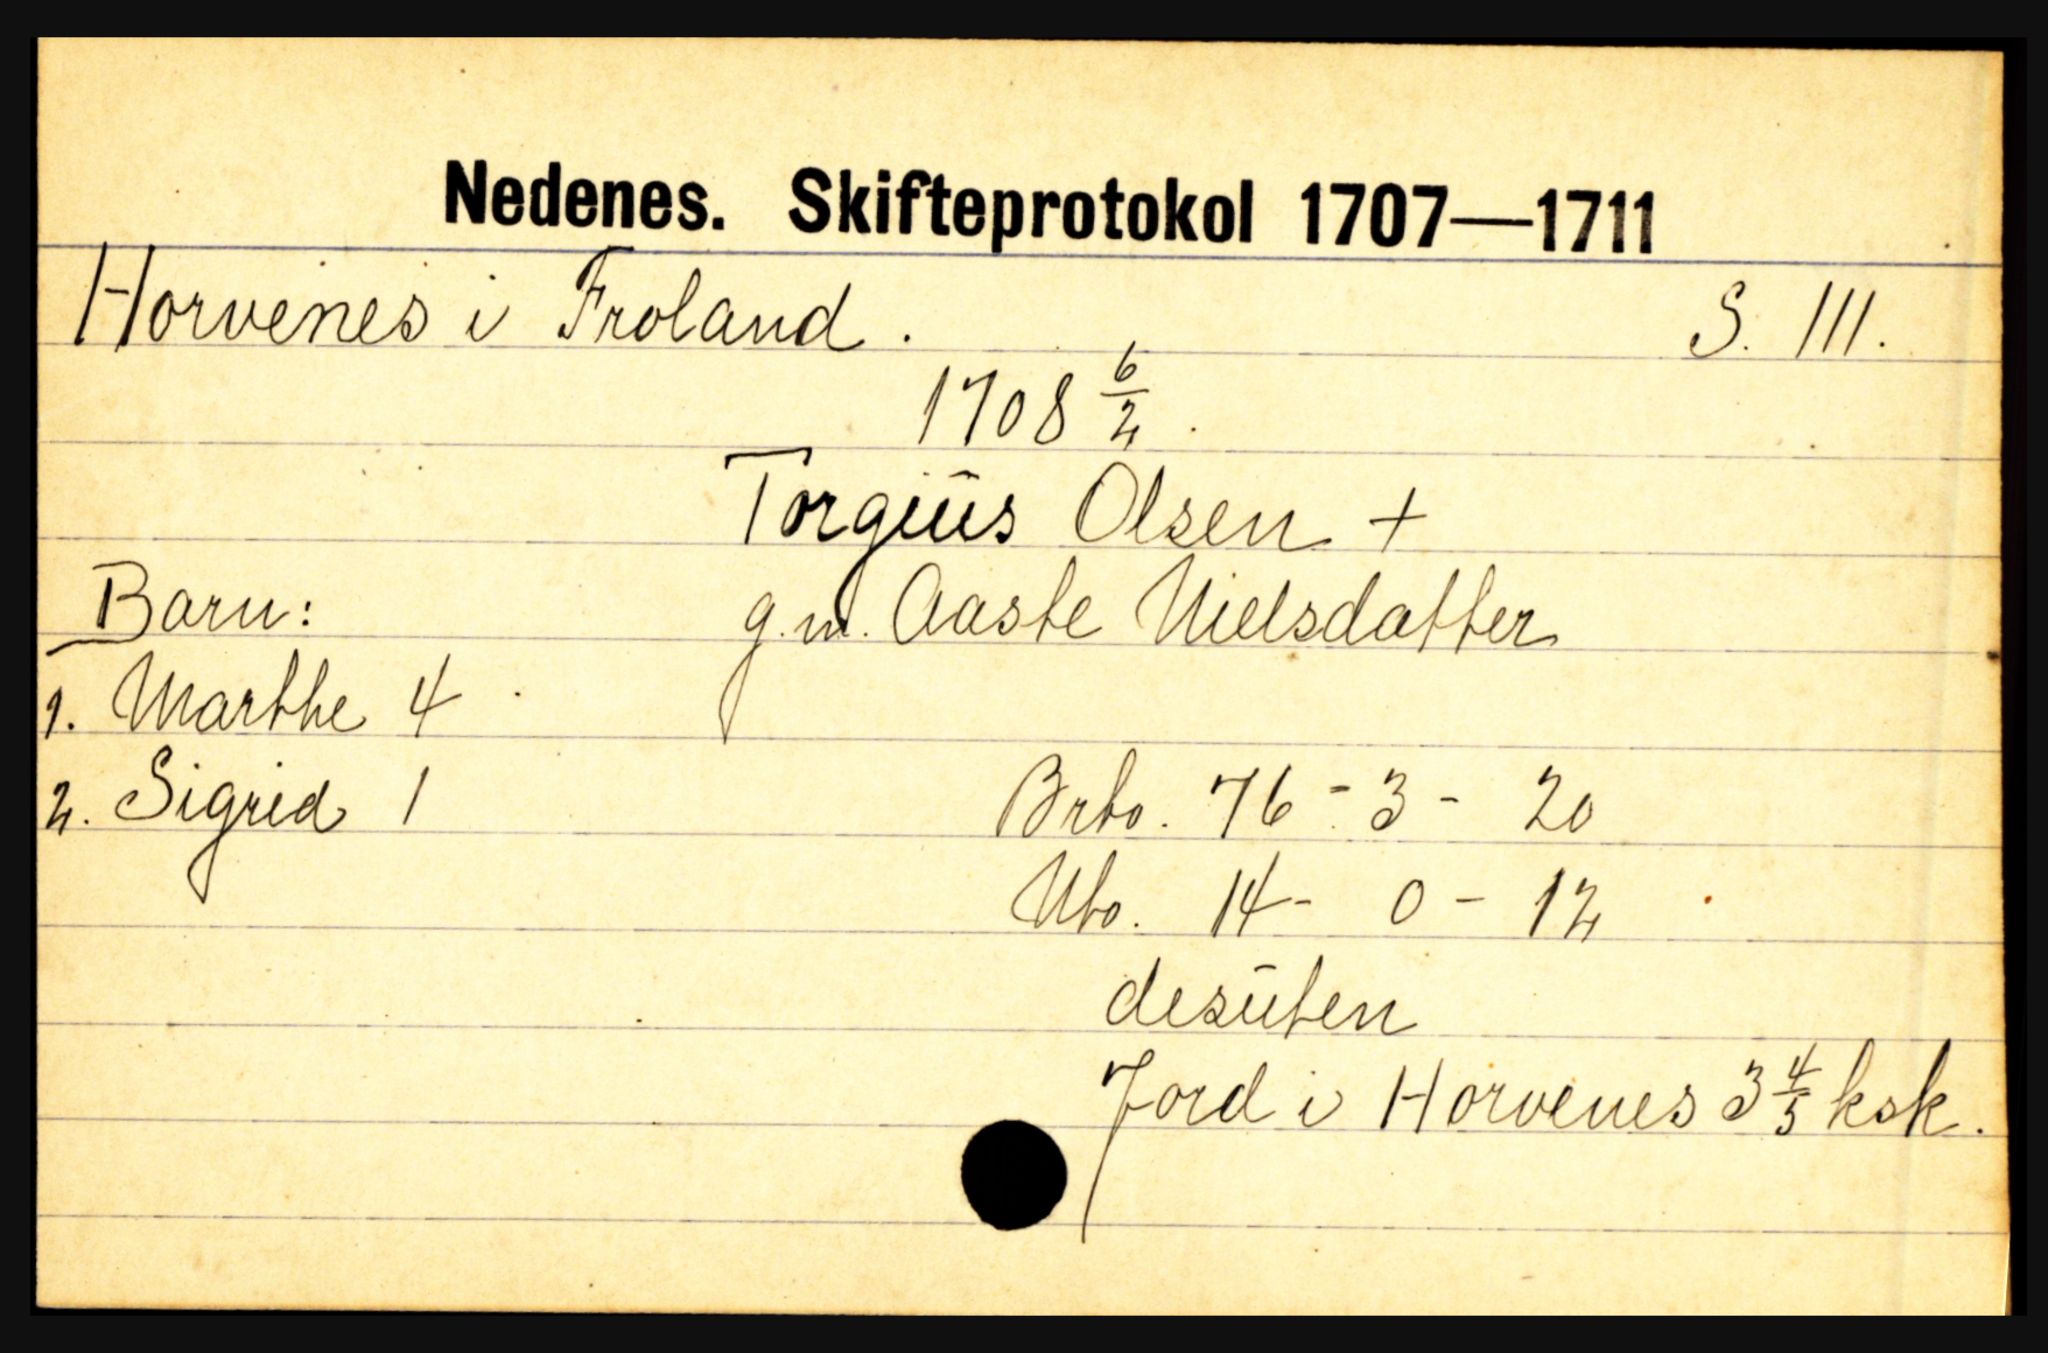 Nedenes. Skifteprotokol 1707—1711
Horvenes i Froland. S. 111.
1708 6/2.
Torgiūs Olsen +
Barn: g.m. Aaste Nielsdatter
1. Marthe 4
2. Sigrid 1 Brto. 76 - 3 - 20
Nto. 14 - 0 - 12
desūten
Jord i Horvenes 3 4/5 ksk.